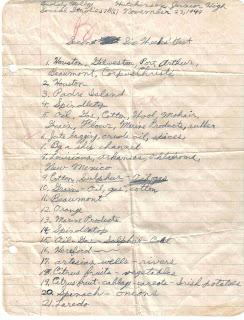 Hutcherson Junior High
November 23, 1949
Second Six Weeks Test
1. Houston, Galveston, Port Arthur,
Beaumont, Corpus Christi
2. Houston
3. Padre Island
4. Spindletop
5. Oil, Gas, Cotton, Wool, Mohair,
Flour, Marine Products,
6. Jute bagging, crude oil, spices
7. By a ship channel
8. Louisiana, Arkansas, Oklahoma,
New Mexico
9. Cotton, Sulphur
10. oil, gas, cotton
11. Beaumont
12. Orange
13. Marine Products
14. Spindletop
15. Oil - Gas - Sulphur -
16. Hereford
17. artesian wells - rivers
18. Citrus fruits - vegetables
19. Citrus fruit - cabbage - - Irish potatoes
20. Spinach - onions
21. Laredo